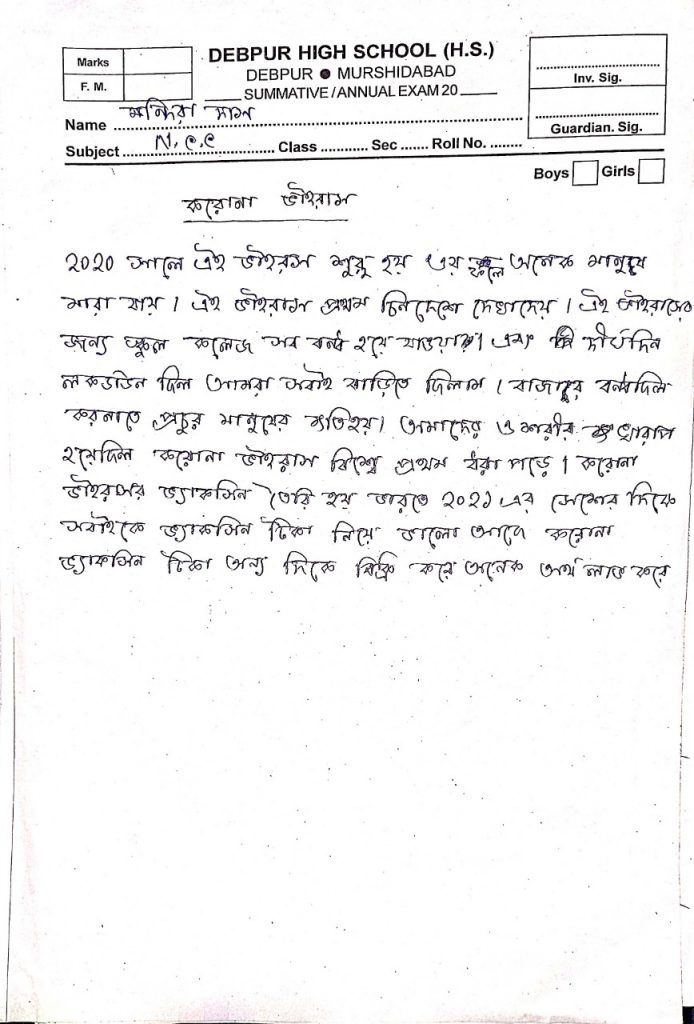 Marks
F. M.
DEBPUR HIGH SCHOOL (H.S.)
DEBPUR ● MURSHIDABAD
SUMMATIVE / ANNUAL EXAM 20
Inv. Sig.
Guardian. Sig.
Name মন্দিরা দাস
Subject N.C.C Class Sec Roll No.
Boys Girls
করোনা ভাইরাস
2020 সালে এই ভাইরাস শুরু হয় এর ফলে অনেক মানুষ
মারা যায়। এই ভাইরাস প্রথম চিনদেশে দেখাদেয়। এই ভাইরাসের
জন্য স্কুল কলেজ সব বন্ধ হয়ে যাওয়ায়। এবং দীর্ঘদিন
লকডাউন ছিল আমরা সবাই বাড়িতে ছিলাম। বাজার বন্ধছিল
করলাতে প্রচুর মানুষের ক্ষতিহয়। আমাদের ও শরীর খারাপ
হয়েছিল করোনা ভাইরাস বিশ্বে প্রথম ধরা পড়ে। করোনা
ভাইরাসর ভ্যাকসিন তৈরি হয় ভারতে 2021 এর শেষের দিকে
সবাইকে ভ্যাকসিন টিকা নিয়ে ভালো আছে করোনা
ভ্যাকসিন টিকা অন্য দিকে বিক্রি করে অনেক অর্থ লাভ করে